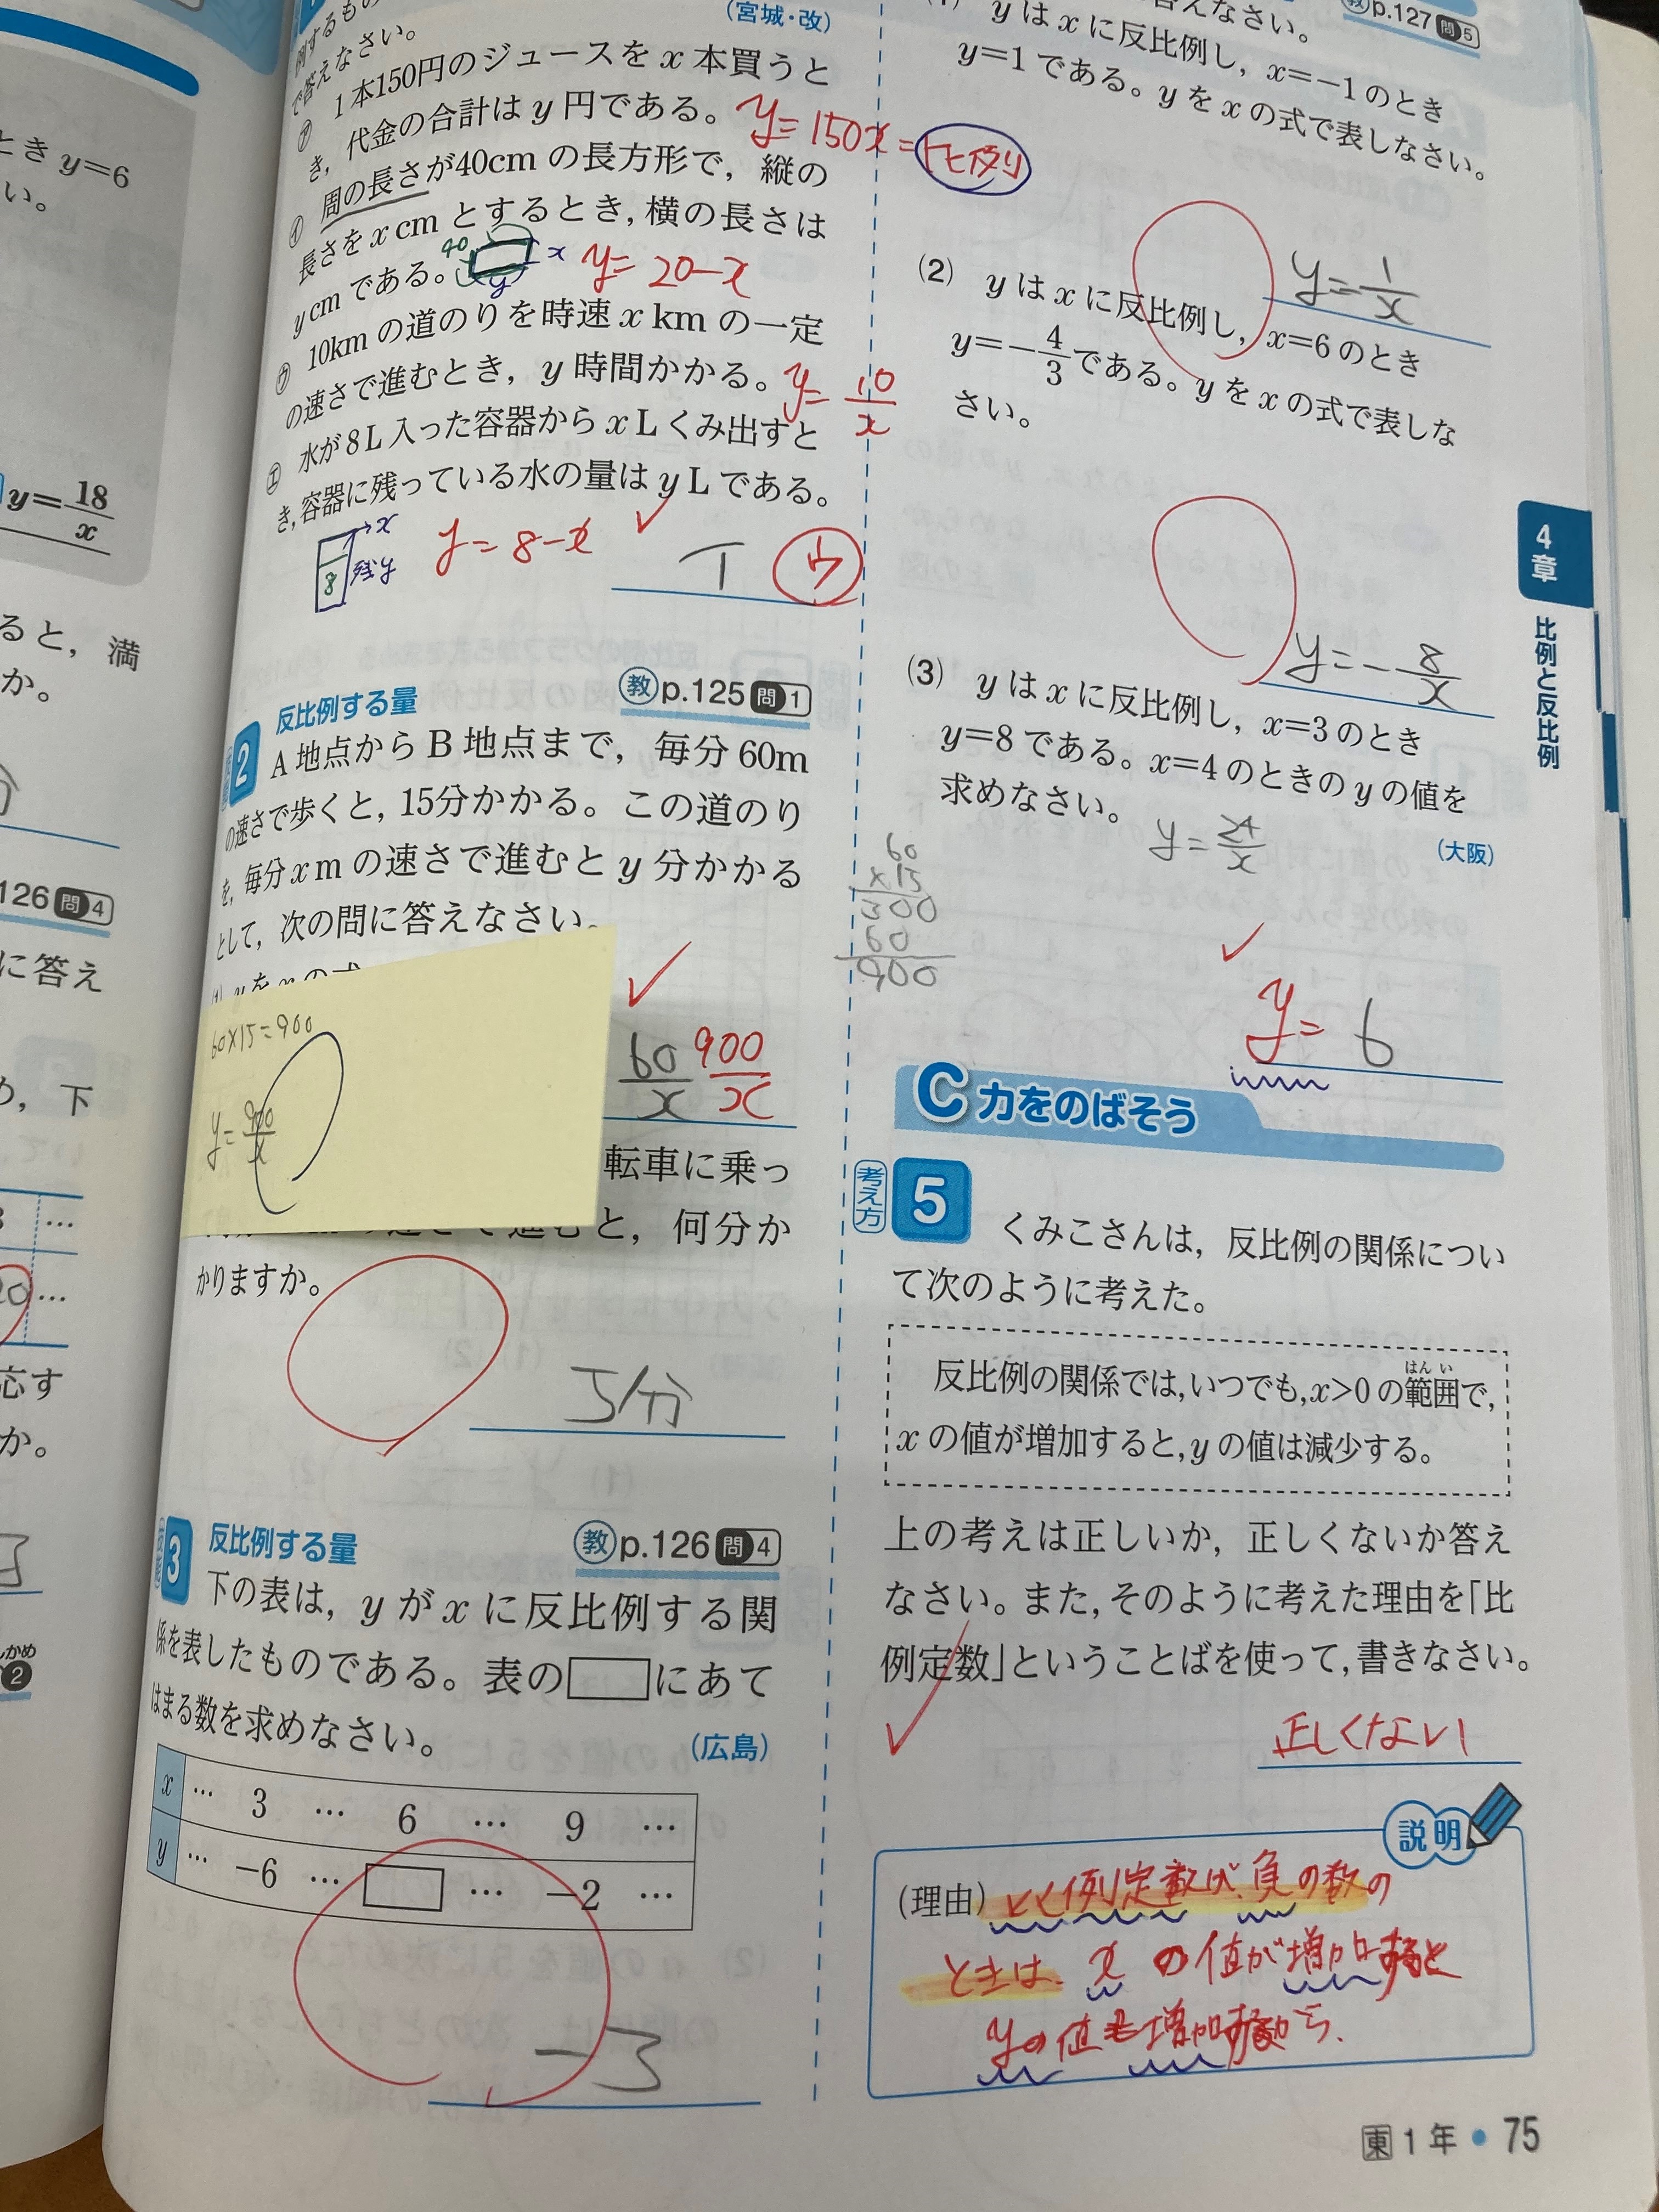 とき y=6
い。
y=18/x
ると，満
か。
126 問4
に答え
め，下
3 …
20 …
応す
か。
かめ
2
(宮城・改)
例するもの
で答えなさい。
㋐ 1本150円のジュースを x 本買うと
き，代金の合計は y 円である。
y=150x=比例
㋑ 周の長さが40cm の長方形で，縦の
長さを x cm とするとき，横の長さは
y cm である。
40 x y
y=20-x
㋒ 10km の道のりを時速 x km の一定
の速さで進むとき，y 時間かかる。
y=10/x
㋓ 水が8L入った容器から x L くみ出すと
き，容器に残っている水の量は y L である。
x
8 残y
y=8-x
イ ウ
2 反比例する量 教p.125 問1
A 地点から B 地点まで，毎分 60m
の速さで歩くと，15分かかる。この道のり
を，毎分 x m の速さで進むと y 分かかる
として，次の問に答えなさい。
60×15=900
y=900/x
60/x 900/x
転車に乗っ
と，何分か
かりますか。
5分
3 反比例する量 教p.126 問4
下の表は，y が x に反比例する関
係を表したものである。表の□にあて
はまる数を求めなさい。
(広島)
x … 3 … 6 … 9 …
y … −6 … □ … −2 …
−3
教p.127 問5
えなさい。
y は x に反比例し，x=−1 のとき
y=1 である。y を x の式で表しなさい。
y=1/x
(2) y は x に反比例し，x=6 のとき
y=−4/3 である。y を x の式で表しな
さい。
y=−8/x
(3) y は x に反比例し，x=3 のとき
y=8 である。x=4 のときの y の値を
求めなさい。
(大阪)
y=24/x
60
×15
300
60
900
y=6
C 力をのばそう
考え方 5 くみこさんは，反比例の関係につい
て次のように考えた。
反比例の関係では，いつでも，x>0 の範囲で，
はんい
x の値が増加すると，y の値は減少する。
上の考えは正しいか，正しくないか答え
なさい。また，そのように考えた理由を「比
例定数」ということばを使って，書きなさい。
正しくない
説明
(理由) 比例定数が、負の数の
ときは、x の値が増加すると
yの値も増加するから、
4章 比例と反比例
東1年・75